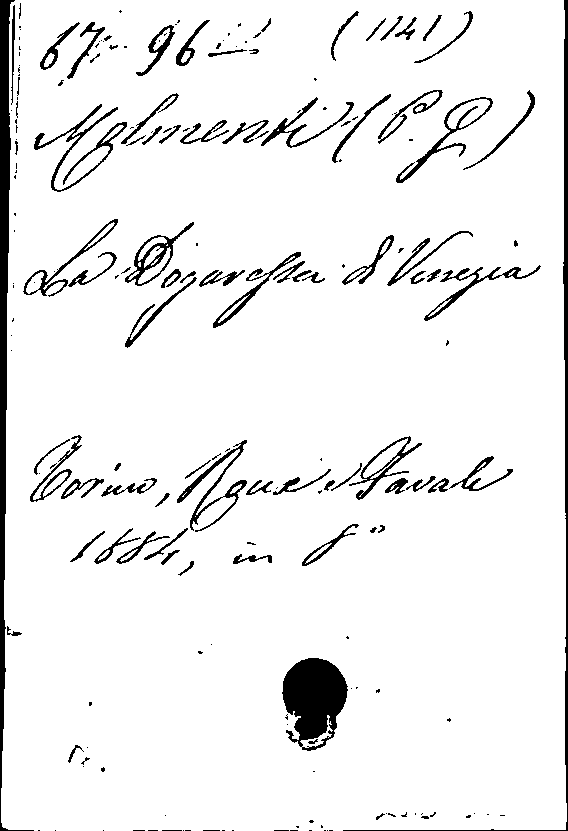 67 96 (1141)
Molmenti (P. G.)
La Dogaressa di Venezia
Torino, Roux e Favale
1884, in 8°